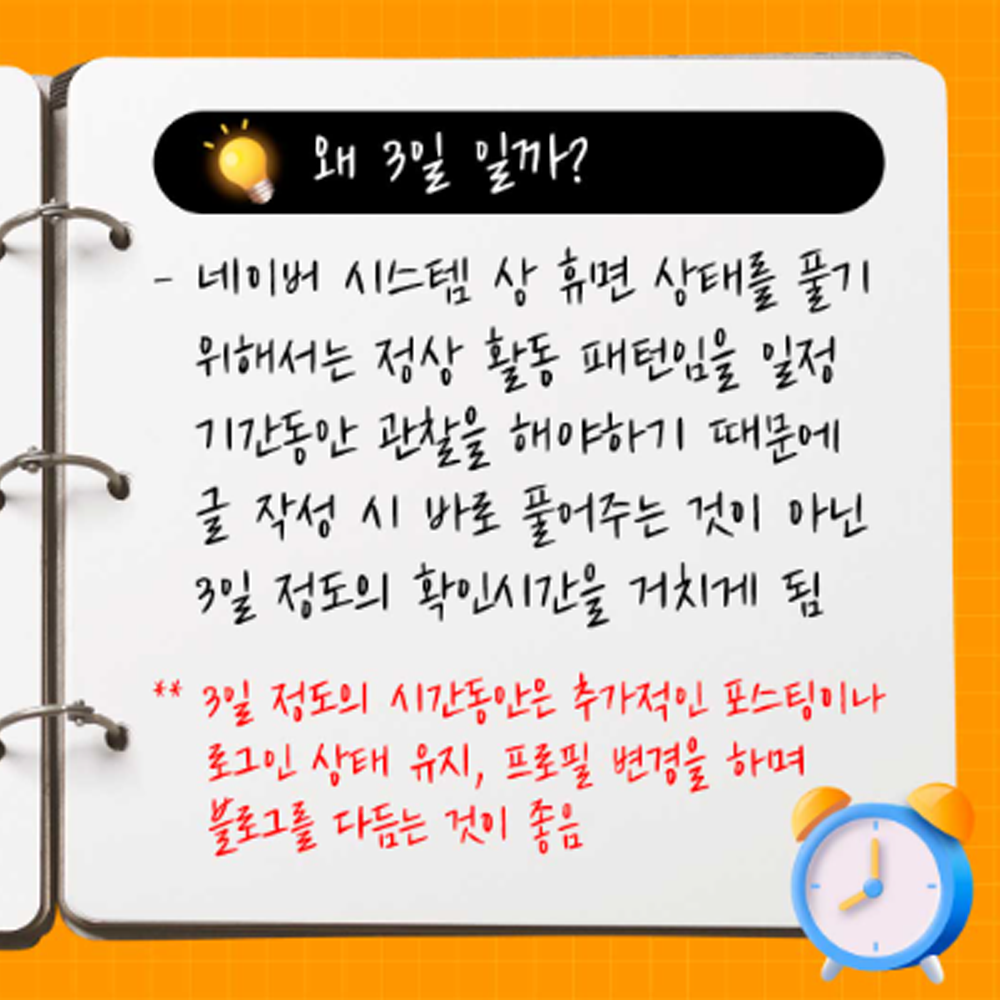 왜 3일 일까?
- 네이버 시스템 상 휴면 상태를 풀기
위해서는 정상 활동 패턴임을 일정
기간동안 관찰을 해야하기 때문에
글 작성 시 바로 풀어주는 것이 아닌
3일 정도의 확인시간을 거치게 됨
** 3일 정도의 시간동안은 추가적인 포스팅이나
로그인 상태 유지, 프로필 변경을 하며
블로그를 다듬는 것이 좋음